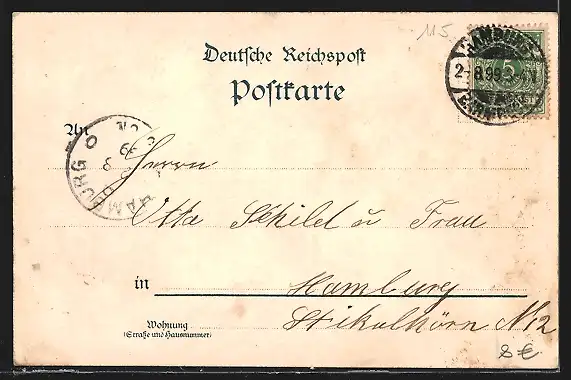 115
Deutsche Reichspost
Postkarte
HAMBURG
2-8 99 3-4N
5
An
HAMBURG
Herrn
Otto Schild u Frau
in Hamburg
Wohnung
(Straße und Hausnummer)
N 12
8 €